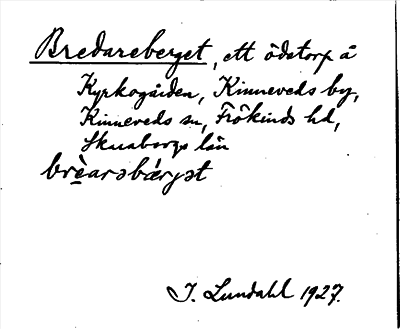 Bredareberget, ett ödetorp å
Kyrkogården, Kinneveds by,
Kinneveds sn, Frökinds hd,
Skaraborgs län
brèarəbǽrgət
J. Lundahl 1927.